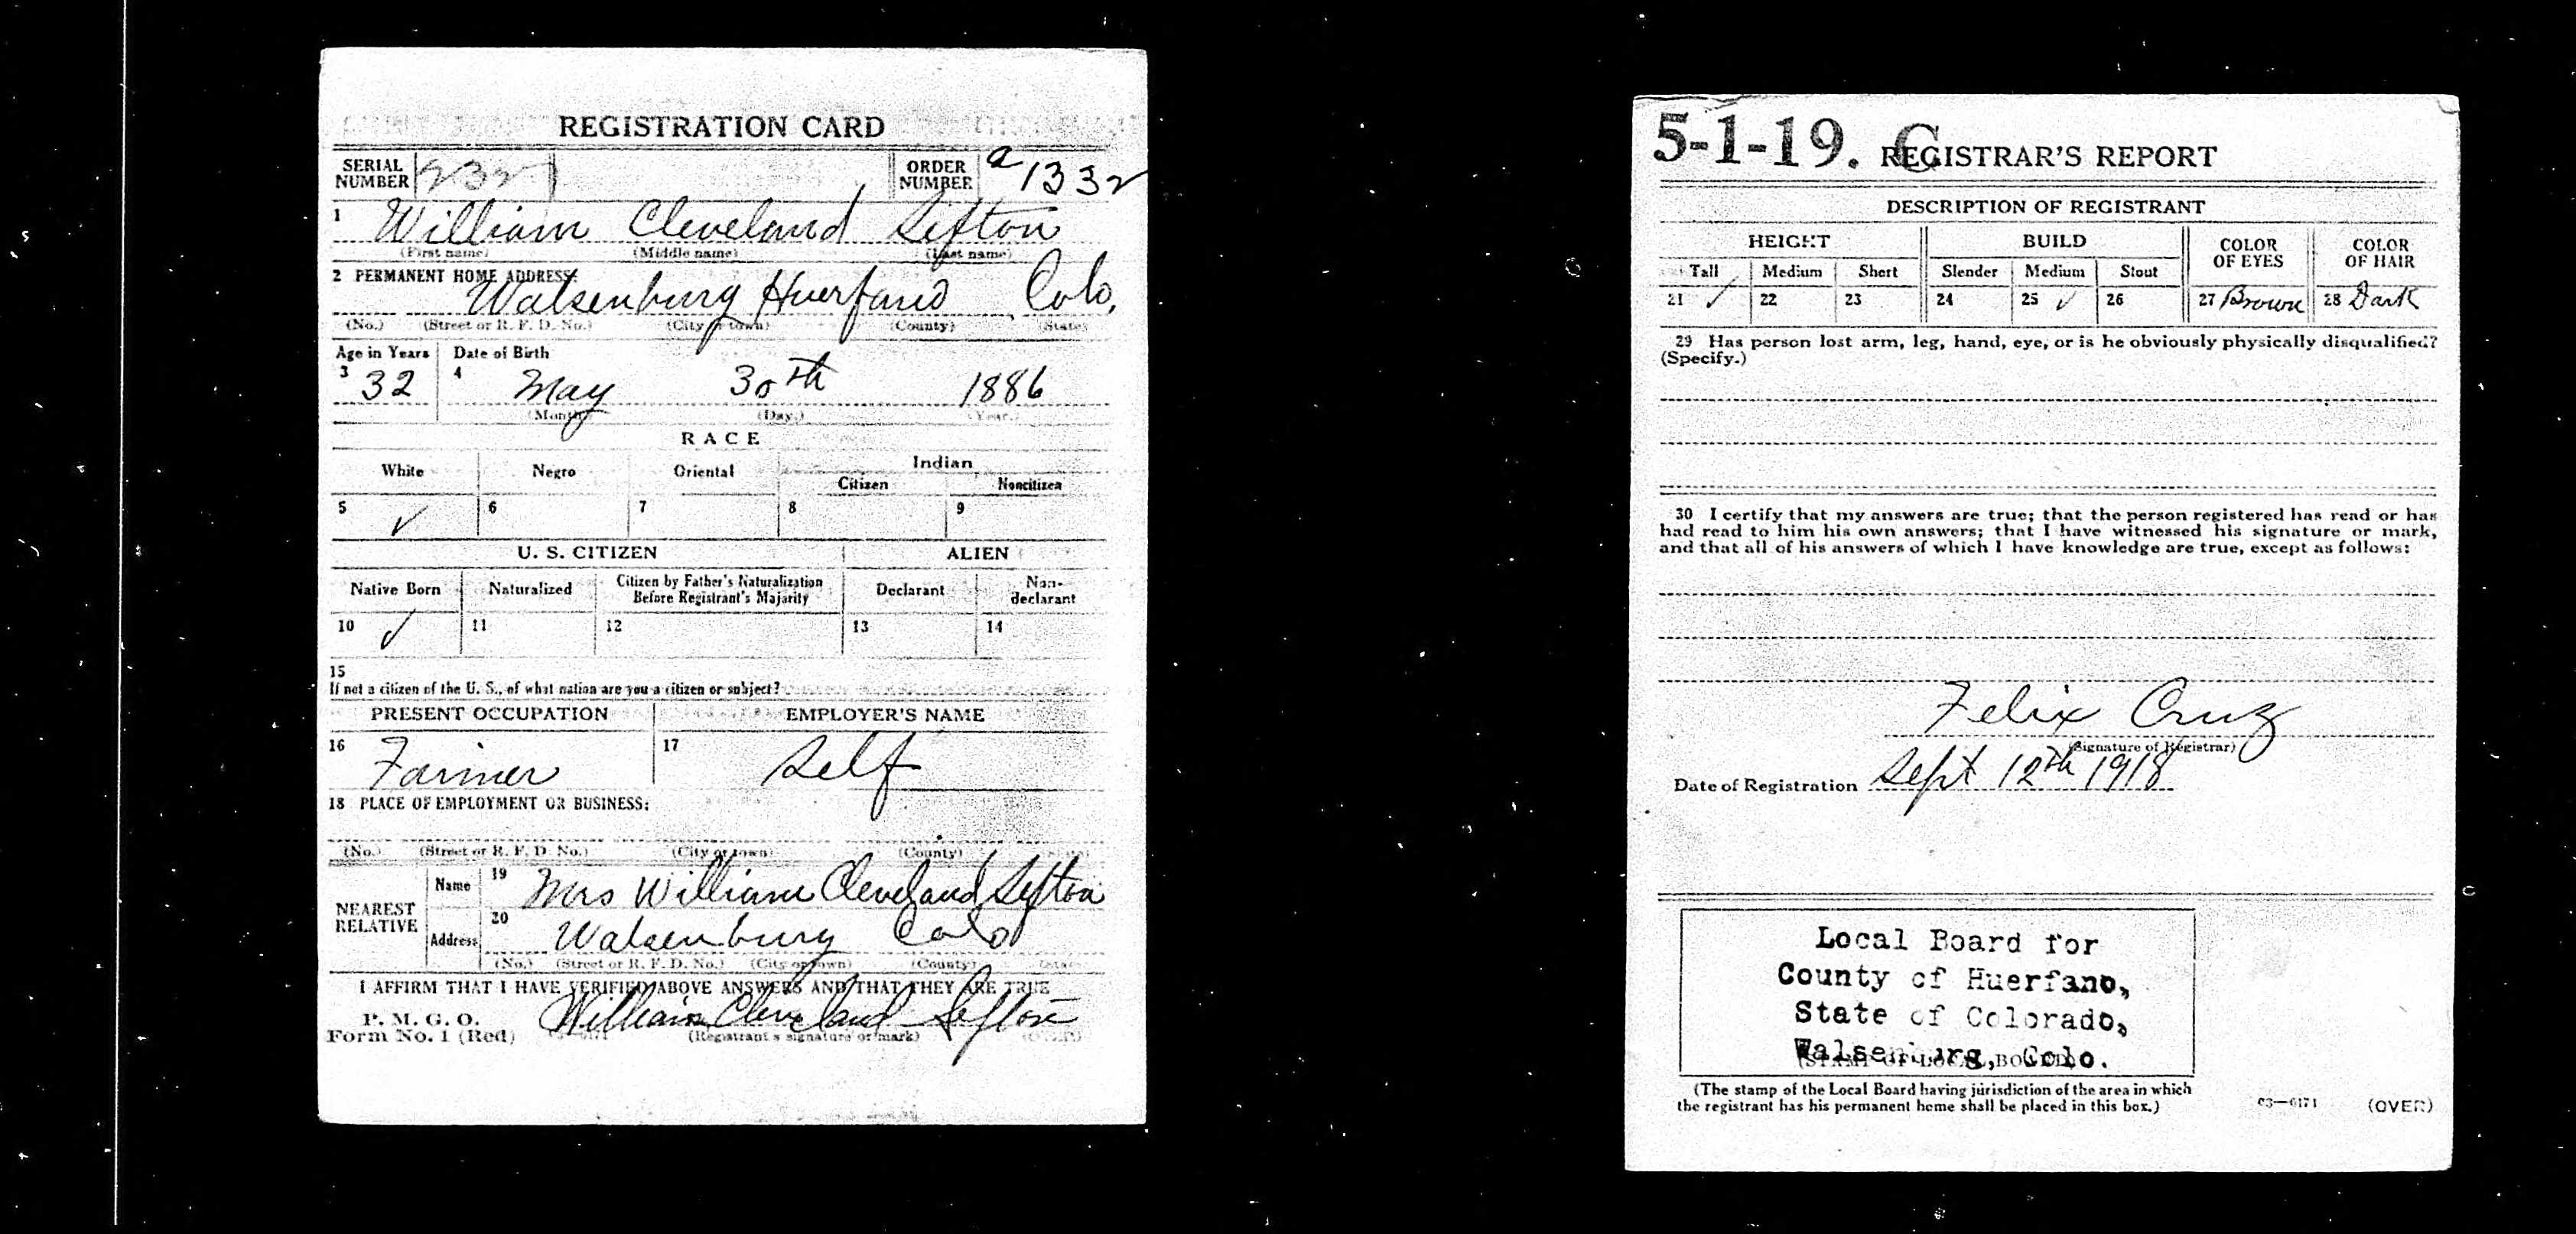 REGISTRATION CARD
SERIAL NUMBER 232 ORDER NUMBER a 1332
1 William Cleveland Sefton
(First name) (Middle name) (Last name)
2 PERMANENT HOME ADDRESS:
Walsenburg Huerfano Colo.
(No.) (Street or R. F. D. No.) (City or town) (County) (State)
Age in Years Date of Birth
3 32 4 May 30th 1886
(Month) (Day.) (Year.)
RACE
White Negro Oriental Indian
Citizen Noncitizen
5 ✓ 6 7 8 9
U. S. CITIZEN ALIEN
Native Born Naturalized Citizen by Father's Naturalization Before Registrant's Majority Declarant Non-declarant
10 ✓ 11 12 13 14
15
If not a citizen of the U. S., of what nation are you a citizen or subject?
PRESENT OCCUPATION EMPLOYER'S NAME
16 Farmer 17 Self
18 PLACE OF EMPLOYMENT OR BUSINESS:
(No.) (Street or R. F. D. No.) (City or town) (County) (State)
NEAREST RELATIVE Name 19 Mrs William Cleveland Sefton
Address 20 Walsenburg Colo
(No.) (Street or R. F. D. No.) (City or town) (County) (State)
I AFFIRM THAT I HAVE VERIFIED ABOVE ANSWERS AND THAT THEY ARE TRUE
P. M. G. O.
Form No. 1 (Red) William Cleveland Sefton
(Registrant's signature or mark) (OVER)
5-1-19. C REGISTRAR'S REPORT
DESCRIPTION OF REGISTRANT
HEIGHT BUILD COLOR OF EYES COLOR OF HAIR
Tall Medium Short Slender Medium Stout
21 ✓ 22 23 24 25 ✓ 26 27 Brown 28 Dark
29 Has person lost arm, leg, hand, eye, or is he obviously physically disqualified?
(Specify.)
30 I certify that my answers are true; that the person registered has read or has
had read to him his own answers; that I have witnessed his signature or mark,
and that all of his answers of which I have knowledge are true, except as follows:
Felix Cruz
(Signature of Registrar)
Date of Registration Sept 12th 1918
Local Board for
County of Huerfano,
State of Colorado,
Walsenburg, Colo.
(STAMP OF LOCAL BOARD)
(The stamp of the Local Board having jurisdiction of the area in which
the registrant has his permanent home shall be placed in this box.)
03—6171 (OVER)